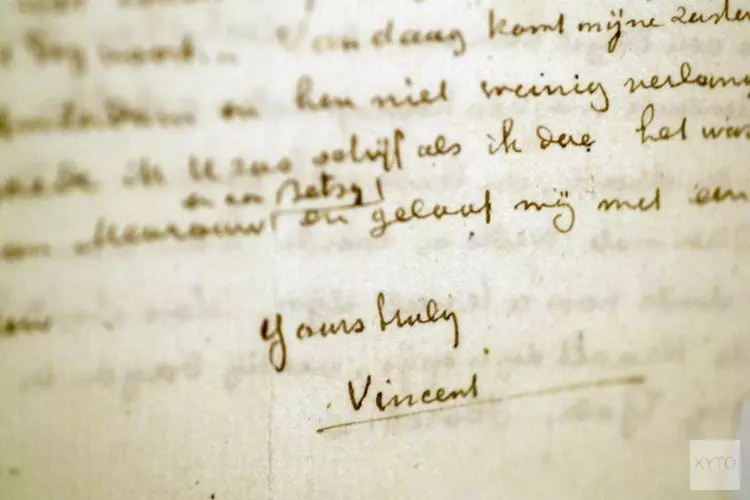 Van daag komt mijne zuster
en ben niet weinig verlang
ik U zoo schrijf als ik doe. het was
en aan Betsy
Mevrouw en geloof mij met een
Yours truly
Vincent
XYTO